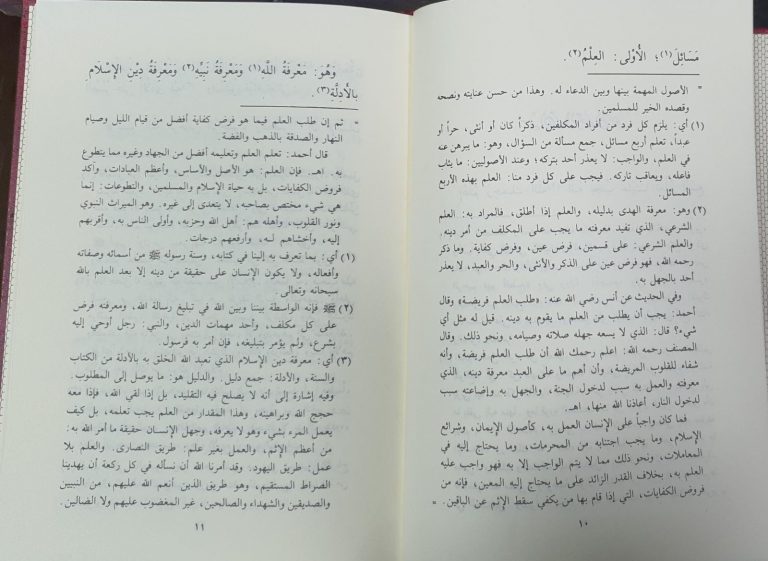 مَسَائِلَ (١)؛ الأُوْلى: العِلْمُ (٢).
* الأصول المهمة بينها وبين الدعاء له. وهذا من حسن عنايته ونصحه
وقصده الخير للمسلمين.
(١) أي: يلزم كل فرد من أفراد المكلفين، ذكراً كان أو أنثى، حراً أو
عبداً، تعلم أربع مسائل، جمع مسألة من السؤال، وهو: ما يبرهن عنه
في العلم، والواجب: لا يعذر أحد بتركه؛ وعند الأصوليين: ما يثاب
فاعله، ويعاقب تاركه. فيجب على كل فرد منا: العلم بهذه الأربع
المسائل.
(٢) وهو: معرفة الهدى بدليله، والعلم إذا أطلق، فالمراد به: العلم
الشرعي، الذي تفيد معرفته ما يجب على المكلف من أمر دينه.
والعلم الشرعي: على قسمين، فرض عين، وفرض كفاية. وما ذكر
رحمه الله، فهو فرض عين على الذكر والأنثى، والحر والعبد، لا يعذر
أحد بالجهل به.
وفي الحديث عن أنس رضي الله عنه: «طلب العلم فريضة» وقال
أحمد: يجب أن يطلب من العلم ما يقوم به دينه. قيل له مثل أي
شيء؟ قال: الذي لا يسعه جهله صلاته وصيامه، ونحو ذلك. وقال
المصنف رحمه الله: اعلم رحمك الله أن طلب العلم فريضة، وأنه
شفاء للقلوب المريضة، وأن أهم ما على العبد معرفة دينه، الذي
معرفته والعمل به سبب لدخول الجنة، والجهل به وإضاعته سبب
لدخول النار، أعاذنا الله منها، اهـ.
فما كان واجباً على الإنسان العمل به، كأصول الإيمان، وشرائع
الإسلام، وما يجب اجتنابه من المحرمات، وما يحتاج إليه في
المعاملات، ونحو ذلك مما لا يتم الواجب إلا به فهو واجب عليه
العلم به، بخلاف القدر الزائد على ما يحتاج إليه المعين، فإنه من
فروض الكفايات، التي إذا قام بها من يكفي سقط الإثم عن الباقين. *
١٠
وَهُوَ: مَعْرِفَةُ اللَّهِ (١) وَمَعْرِفَةُ نَبِيِّهِ (٢) وَمَعْرِفَةُ دِيْنِ الإِسْلَامِ
بالأَدِلَّةِ (٣).
* ثم إن طلب العلم فيما هو فرض كفاية أفضل من قيام الليل وصيام
النهار والصدقة بالذهب والفضة.
قال أحمد: تعلم العلم وتعليمه أفضل من الجهاد وغيره مما يتطوع
به. اهـ. فإن العلم: هو الأصل والأساس، وأعظم العبادات، وآكد
فروض الكفايات، بل به حياة الإسلام والمسلمين، والتطوعات: إنما
هي شيء مختص بصاحبه، لا يتعدى إلى غيره. وهو الميراث النبوي
ونور القلوب، وأهله هم: أهل الله وحزبه، وأولى الناس به، وأقربهم
إليه، وأخشاهم لـه، وأرفعهم درجات.
(١) أي: بما تعرف به إلينا في كتابه، وسنة رسوله ﷺ من أسمائه وصفاته
وأفعاله، ولا يكون الإنسان على حقيقة من دينه إلا بعد العلم بالله
سبحانه وتعالى.
(٢) ﷺ فإنه الواسطة بيننا وبين الله في تبليغ رسالة الله، ومعرفته فرض
على كل مكلف، وأحد مهمات الدين، والنبي: رجل أوحي إليه
بشرع، ولم يؤمر بتبليغه، فإن أمر به فرسول.
(٣) أي: معرفة دين الإسلام الذي تعبد الله الخلق به بالأدلة من الكتاب
والسنة، والأدلة: جمع دليل. والدليل هو: ما يوصل إلى المطلوب.
وفيه إشارة إلى أنه لا يصلح فيه التقليد، بل إذا لقي الله، فإذا معه
حجج الله وبراهينه، وهذا المقدار من العلم يجب تعلمه، بل كيف
يعمل المرء بشيء وهو لا يعرفه، وجهل الإنسان حقيقة ما أمر الله به:
من أعظم الإثم، والعمل بغير علم: طريق النصارى. والعلم بلا
عمل: طريق اليهود. وقد أمرنا الله أن نسأله في كل ركعة أن يهدينا
الصراط المستقيم، وهو طريق الذين أنعم الله عليهم، من النبيين
والصديقين والشهداء والصالحين، غير المغضوب عليهم ولا الضالين.
١١